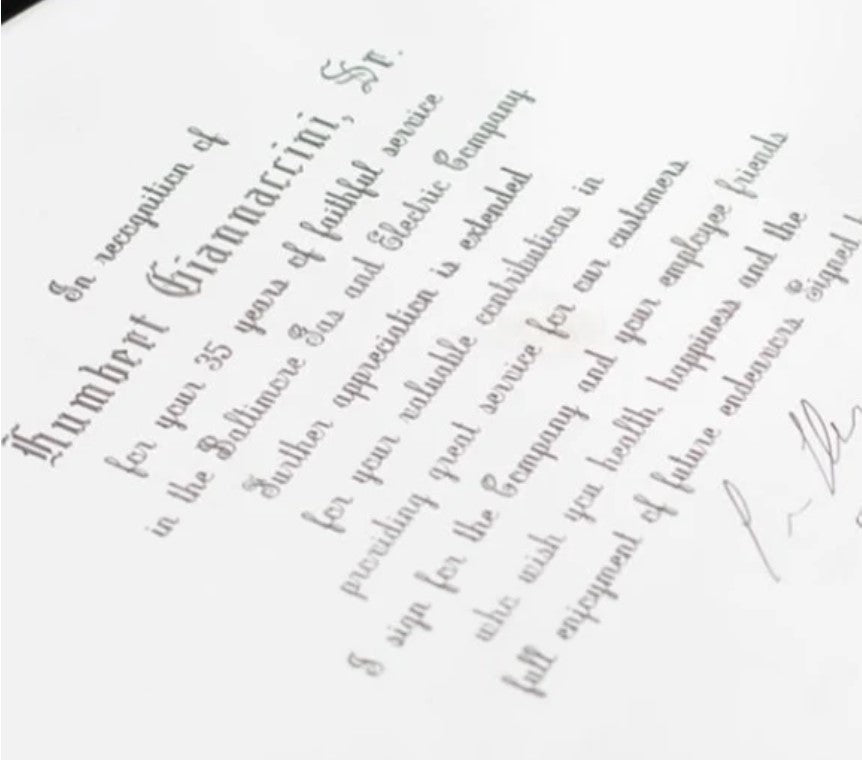 In recognition of
Humbert Giannaccini, Sr.
for your 35 years of faithful service
in the Baltimore Gas and Electric Company
Further appreciation is extended
for your valuable contributions in
providing great service for our customers
I sign for the Company and your employee friends
who wish you health, happiness and the
full enjoyment of future endeavors Signed